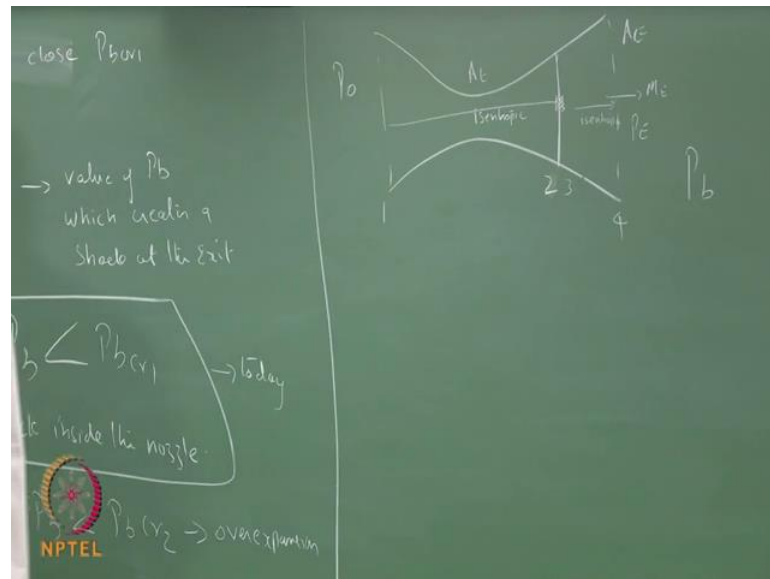 close Pbcr1
→ value of Pb
which creating a
Shock at the Exit
Pb < Pbcr1
→ today
inside the nozzle.
Pb < Pbcr2 → overexpansion
NPTEL
P0
At
AE
isentropic
isentropic
ME
PE
Pb
1
2 3
4